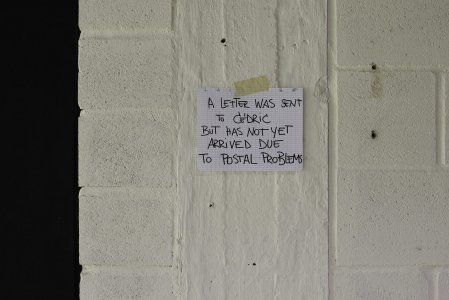 A LETTER WAS SENT
TO CÉDRIC
BUT HAS NOT YET
ARRIVED DUE
TO POSTAL PROBLEMS